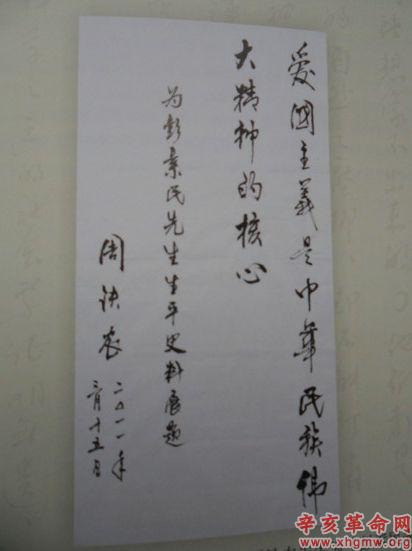 爱國主義是中華民族偉
大精神的核心
为彭素民先生生平史料展题
周铁农
二〇一一年
月十五日
辛亥革命网
www.xhgmw.org